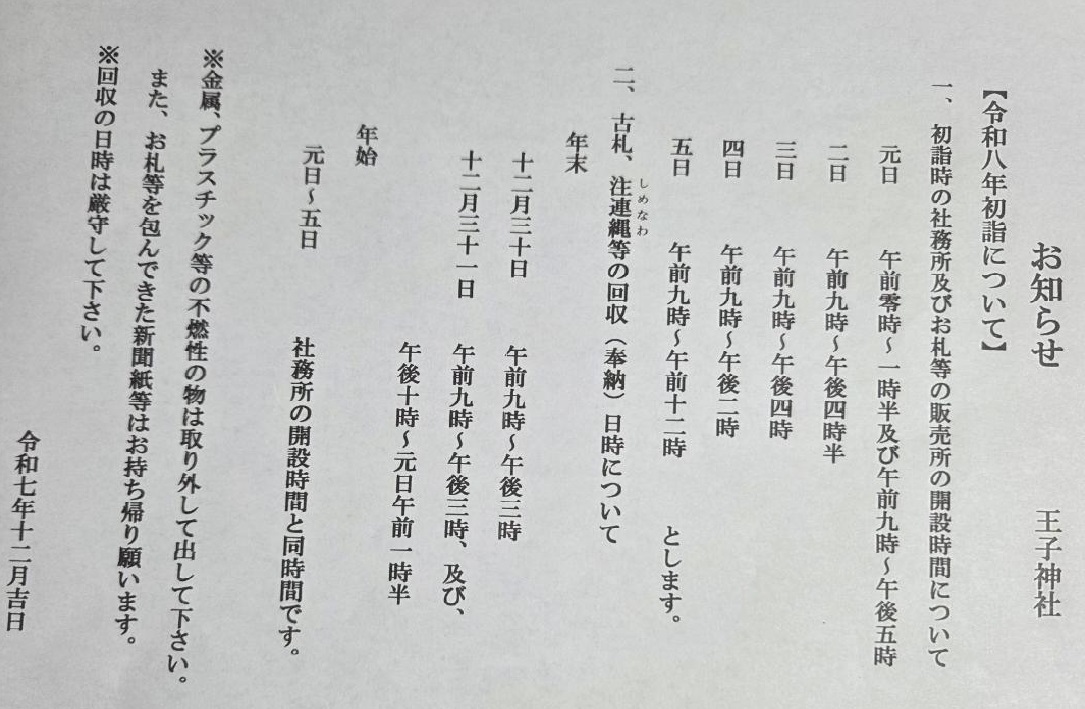 お知らせ　王子神社
【令和八年初詣について】
一、初詣時の社務所及びお札等の販売所の開設時間について
元日　午前零時～一時半及び午前九時～午後五時
二日　午前九時～午後四時半
三日　午前九時～午後四時
四日　午前九時～午後二時
五日　午前九時～午前十二時　とします。
二、古札、注連縄等の回収（奉納）日時について
しめなわ
年末
十二月三十日　午前九時～午後三時
十二月三十一日　午前九時～午後三時、及び、
午後十時～元日午前一時半
年始
元日～五日　社務所の開設時間と同時間です。
※金属、プラスチック等の不燃性の物は取り外して出して下さい。
また、お札等を包んできた新聞紙等はお持ち帰り願います。
※回収の日時は厳守して下さい。
令和七年十二月吉日